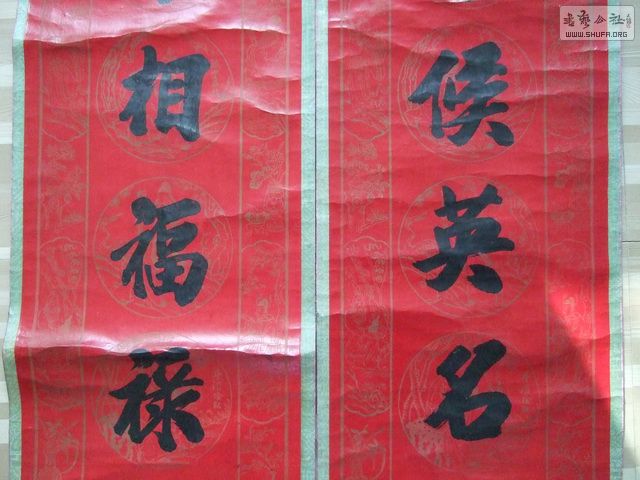 候英名
相福禄
书艺公社
WWW.SHUFA.ORG